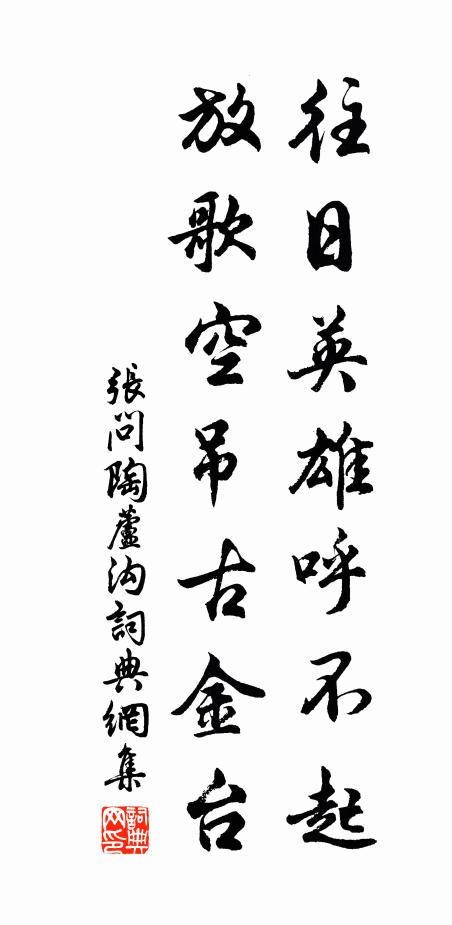 往日英雄呼不起
放歌空吊古金台
張問陶蘆沟詞典網集
詞典網印